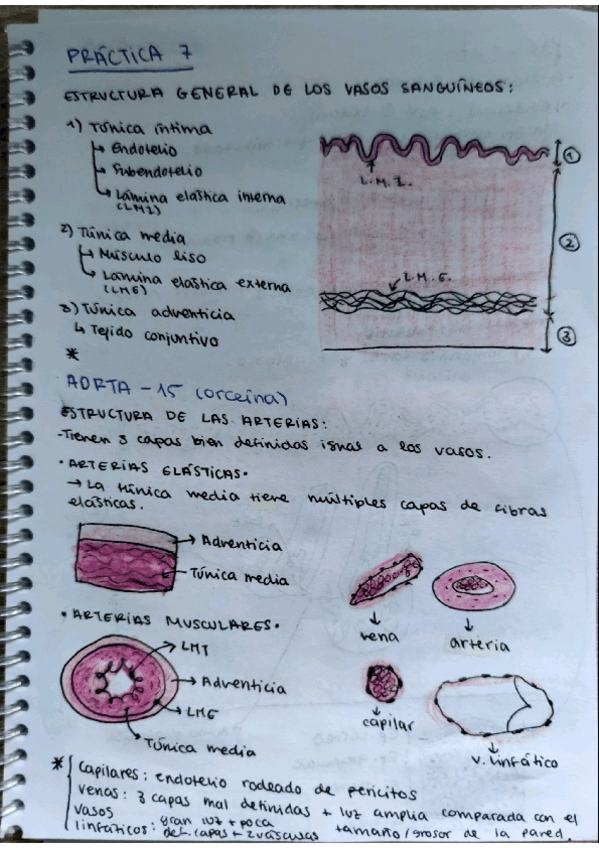 PRÁCTICA 7
ESTRUCTURA GENERAL DE LOS VASOS SANGUÍNEOS:
1) Túnica íntima
Endotelio
Subendotelio
Lámina elástica interna
(LMI)
L.M.I.
1
2) Túnica media
Músculo liso
Lámina elástica externa
(LME)
L.M.E.
2
3) Túnica adventicia
Tejido conjuntivo
3
*
AORTA - 15 (orceína)
ESTRUCTURA DE LAS ARTERIAS:
-Tienen 3 capas bien definidas igual a los vasos.
· ARTERIAS ELÁSTICAS·
→ La túnica media tiene múltiples capas de fibras
elásticas.
Adventicia
Túnica media
vena
arteria
· ARTERIAS MUSCULARES·
LMI
Adventicia
LME
Túnica media
capilar
v. linfático
* Capilares: endotelio rodeado de pericitos
venas: 3 capas mal definidas + luz amplia comparada con el
tamaño/grosor de la pared.
vasos
linfáticos: gran luz + poca
def. capas + 2 válvulas